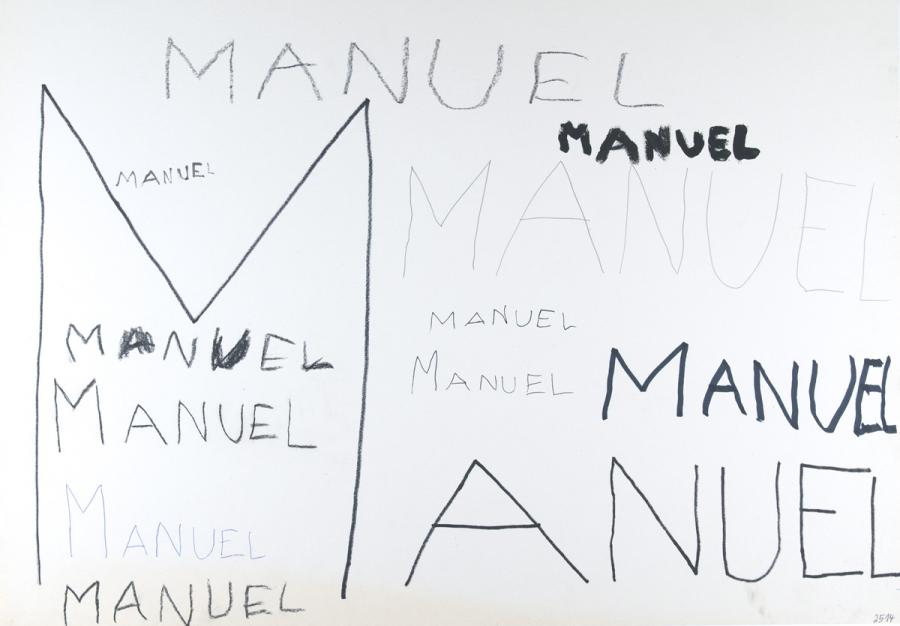 MANUEL
MANUEL
MANUEL
MANUEL
MANUEL
MANUEL
MANUEL
MANUEL
MANUEL
MANUEL
MANUEL
MANUEL
2514